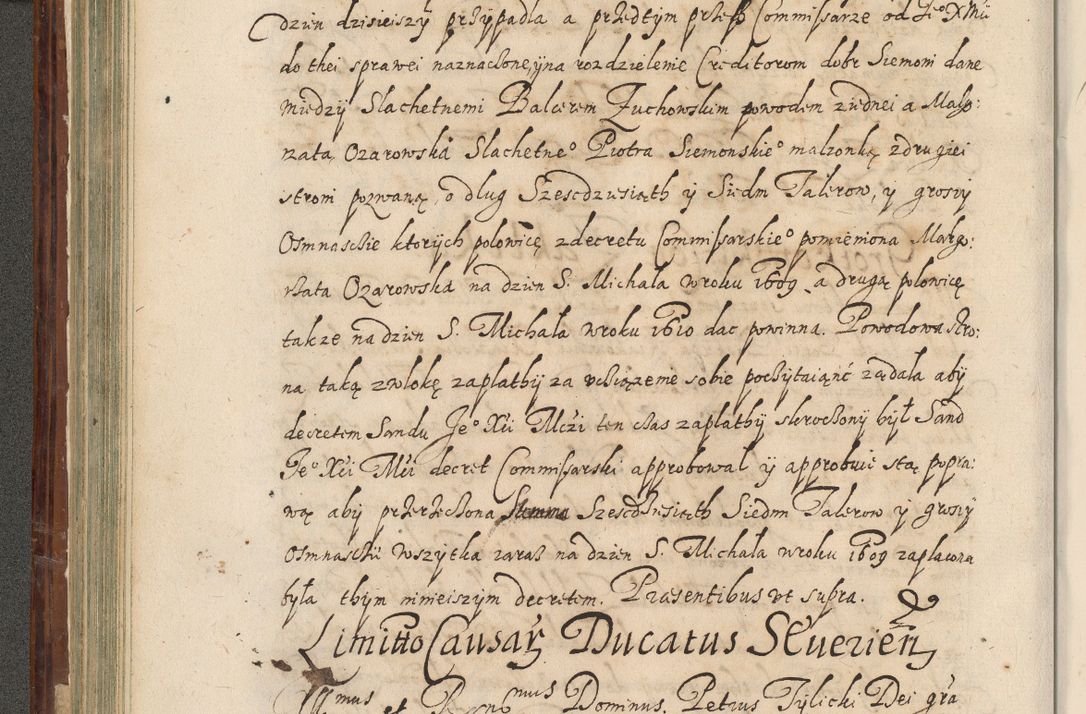 dzien dzisieiszy przypadla a przedtym przesz Commissarze od Jeº X Mci
do thei sprawei naznaczone, yna rozdzielenie Creditorom dobr Siemoni dane
miedzy Slachetnemi Balcerem Zuchowskim powodem ziednei a Malgo:
rzata Ozarowska Slachetneº Piotra Siemonskieº malzonką zdrugiei
stroni pozwaną, o dlug Szescdziesiąth y Siedm Talerow, y groszy
Osmnasckie ktorych polowicę zdecretu Commissarskieº pomieniona Malgo:
rzata Ozarowska na dzien S. Michala wroku 1609 a drugą polowicę
takze na dzien S. Michala wroku 1610 dac powinna. Powodowa stro:
na taką zwlokę zaplathy za uciązenie sobie poczytaiąnc ządala aby
decretem Sandu Jeº Xci Mczi ten czas zaplathy skroczony był Sand
Jeº Xci Mci decret Commissarski approbowal y approbuie stą popra:
wą aby przerzeczona Summa Szescdziesiąth Siedm Talerow y groszy
Osmnascie wszytka zaraz na dzien S. Michala wroku 1609 zaplacona
była thym ninieiszym decretem. Præsentibus ut supra.
Limitto Causarum Ducatus Severien
Illmus et Rndmus Dominus, Petrus Tylicki Dei gra